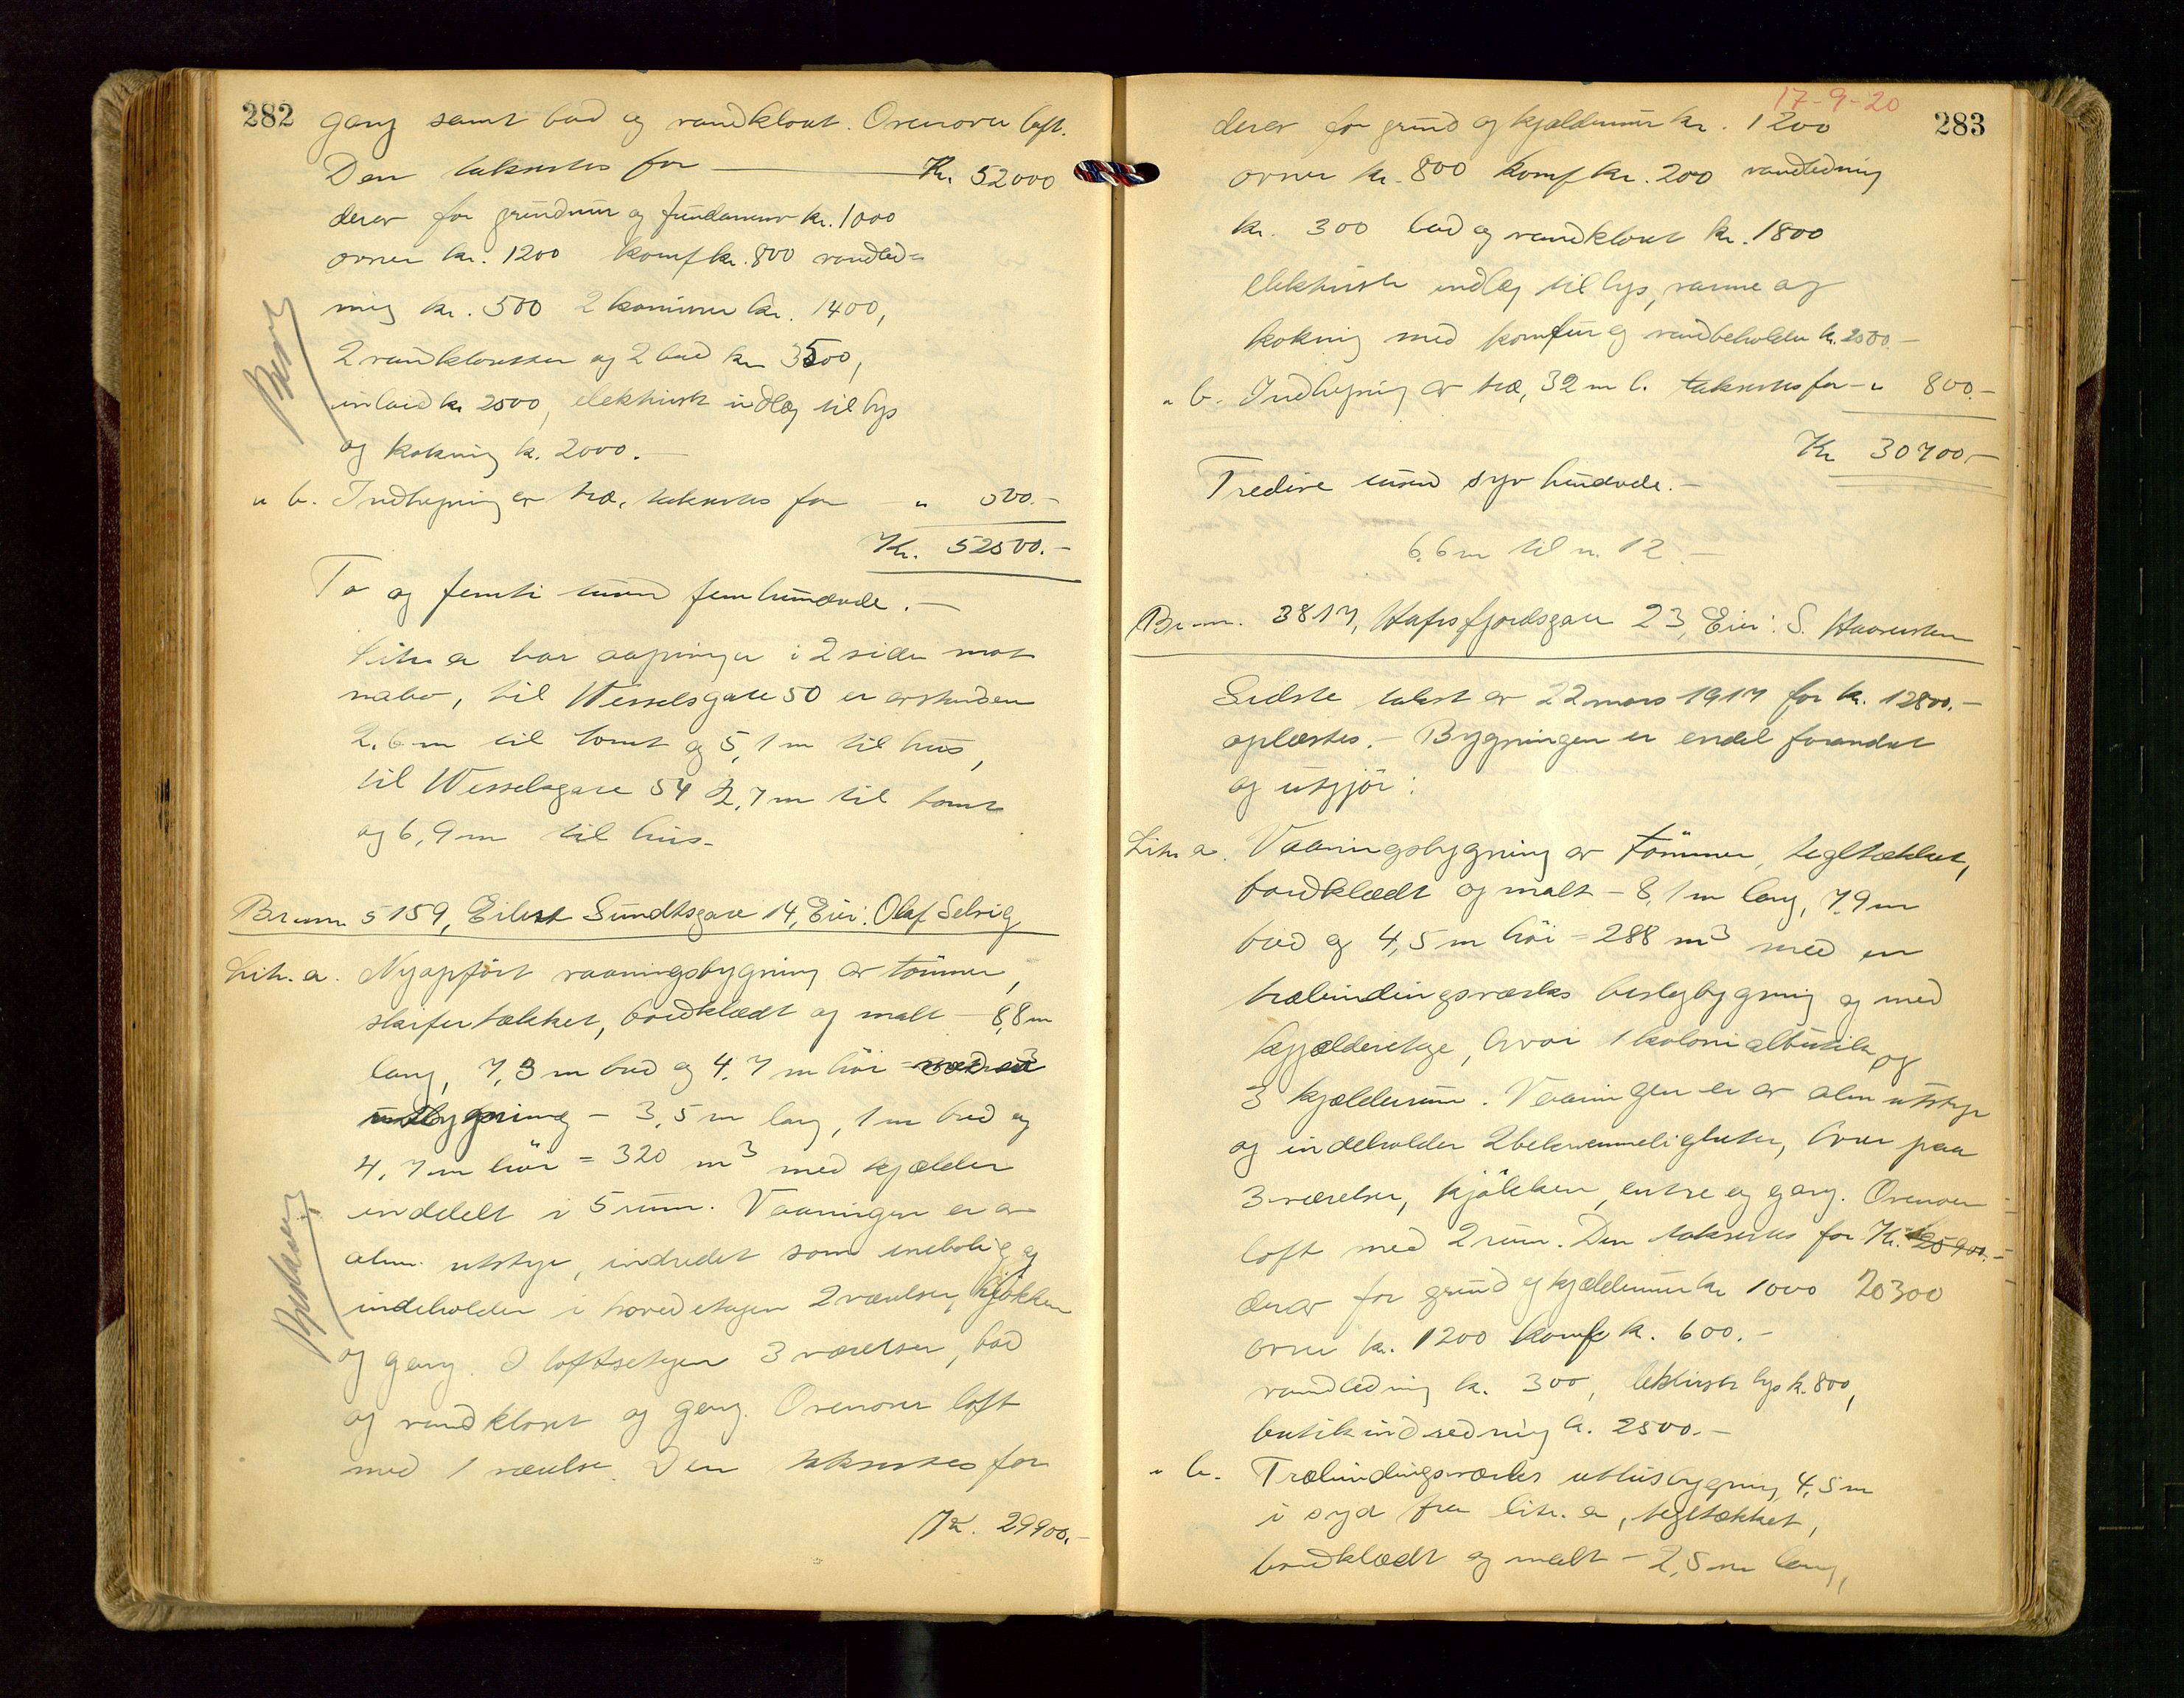 282
gang samt bad og vandkloset. Ovenover loft.
Den takseres for — Kr. 52000
derav for grundmur og fundament kr. 1000
ovner kr. 1200 komf kr. 800 vandled=
ning kr. 500 2 kaminer kr. 1400,
2 vandklosetter og 2 bad kr 3500,
inlaid kr 2500, elektrisk indlæg til lys
og kokning kr. 2000.—
" b. Indhegning av træ, takseres for " 500.—
Kr. 52500.—
To og femti tusen fem hundrede.—
Litr. a har aapninger i 2 sider mot
nabo, til Wesselsgate 50 er avstanden
2,6 m til tomt og 5,1 m til hus,
til Wesselsgate 54 2,7 m til tomt
og 6,9 m til hus.
Br.nr. 5159, Eilert Sundtsgate 14, Eier: Olaf Selvig
Litr. a. Nyopført vaaningsbygning av tømmer,
skifertækket, bordklædt og malt – 8,8 m
lang, 7,3 m bred og 4,7 m høi
utbygning – 3,5 m lang, 1 m bred og
4,7 m høi = 320 m³ med kjælder
inddelt i 5 rum. Vaaningen er av
alm. utstyr, indredet som enebolig og
indeholder i hovedetagen 2 værelser, kjøkken
og gang. I loftsetagen 3 værelser, bad
og vandkloset og gang. Ovenover loft
med 1 værelse. Den takseres for
Kr. 29900.—
17-9-20
283
derav for grund og kjældermur kr. 1200
ovner kr. 800 komf kr. 200 vandledning
kr. 300 bad og vandkloset kr. 1800
elektrisk indlæg til lys, varme og
kokning med komfur og vandbeholder kr. 2500.—
" b. Indhegning av træ, 32 m l. takseres for — " 800.—
Kr 30700.—
Tredive tusen syv hundrede.—
6,6 m til n. 12.—
Br.nr. 3817, Hafrsfjordsgate 23, Eier: S.
Sidste takst av 22 mars 1917 for kr. 12800.—
oplæstes.— Bygningen er endel forandret
og utgjør:
Litr. a. Vaaningsbygning av tømmer, tegltækket,
bordklædt og malt – 8,1 m lang, 7,9 m
bred og 4,5 m høi = 288 m³ med en
træbindingsverks bislagbygning og med
kjælderetage, hvori 1 kolonialbutik og
3 kjælderrum. Vaaningen er av alm utstyr
og indeholder 2 bekvemmeligheter, hver paa
3 værelser, kjøkken, entre og gang. Ovenover
loft med 2 rum. Den takseres for Kr. 25900.—
derav for grund og kjældermur kr 1000 20300
ovner kr. 1200 komf kr. 600.—
vandledning kr. 300, elektrisk lys kr. 800,
butikindredning kr. 2500.—
" b. Træbindingsverks uthusbygning 4,5 m
i syd fra litr. a, tegltækket,
bordklædt og malt – 2,5 m lang,